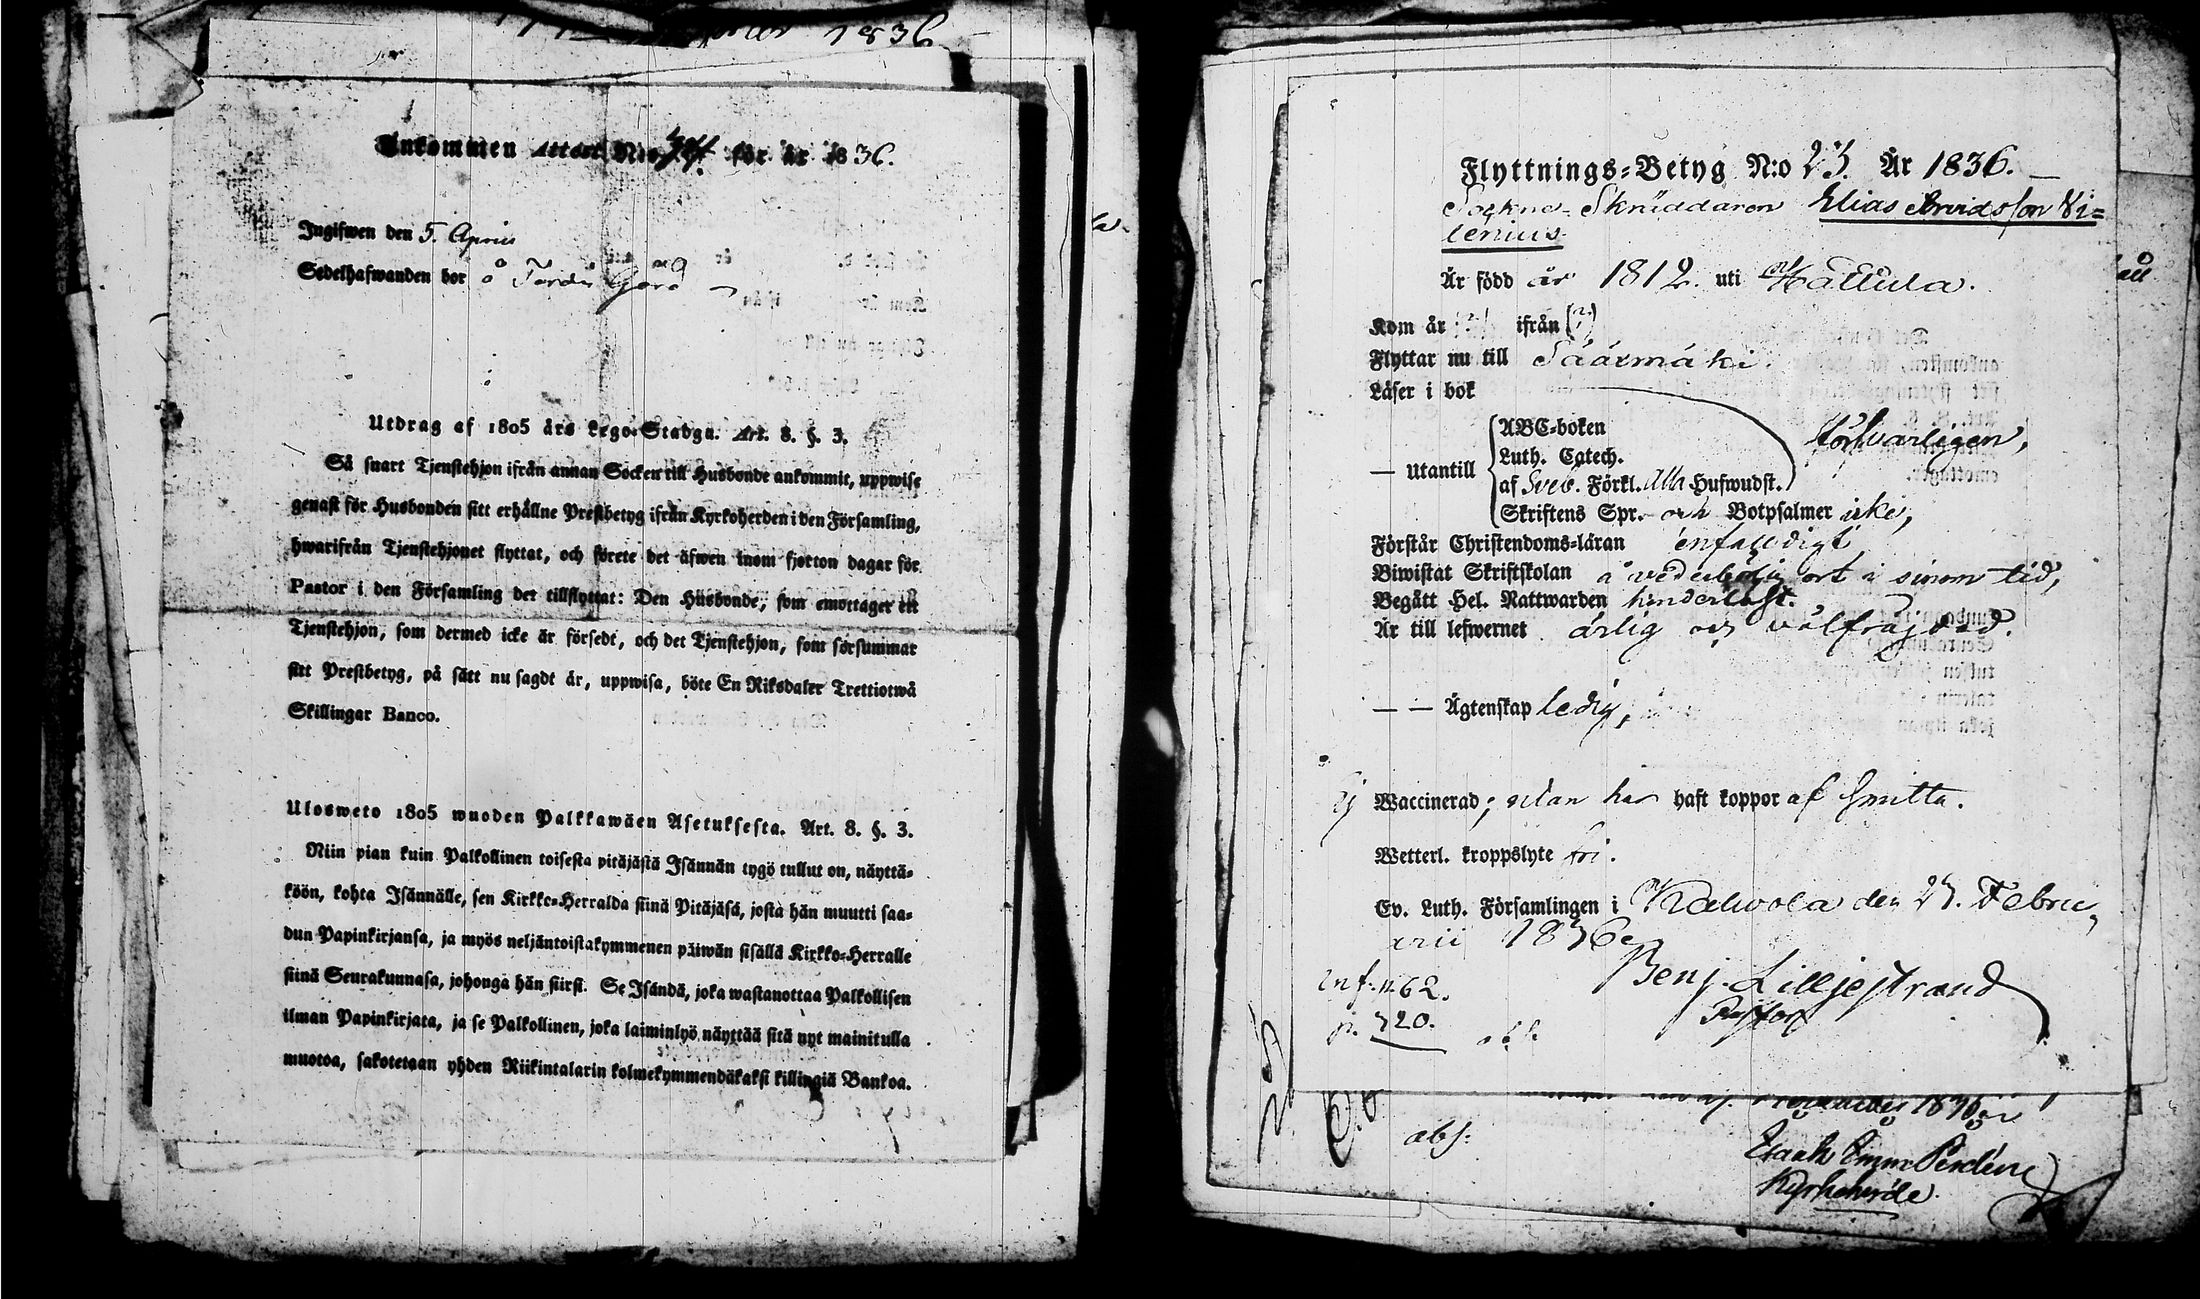 1836
Ankommen attest N:o för år 1836.
Ingifwen den 5. April
Sedelhafwanden bor å Gård
Utdrag af 1805 års Lego-Stadga. Art. 8. §. 3.
Så snart Tjenstehjon ifrån annan Socken till Husbonde ankommit, uppwise
genast för Husbonden sitt erhållne Prestbetyg ifrån Kyrkoherden i den Församling,
hwarifrån Tjenstehjonet flyttat, och förete det äfwen inom fjorton dagar för
Pastor i den Församling det tillflyttat: Den Husbonde, som emottager ett
Tjenstehjon, som dermed icke är försedt, och det Tjenstehjon, som försummar
sitt Prestbetyg, på sätt nu sagdt är, uppwisa, böte En Riksdaler Trettiotwå
Skillingar Banco.
Ulosweto 1805 wuoden Palkkawäen Asetuksesta. Art. 8. §. 3.
Niin pian kuin Palkollinen toisesta pitäjästä Isännän tygö tullut on, näyttä-
köön, kohta Isännälle, sen Kirkko-Herralda siinä Pitäjäsä, josta hän muutti saa-
dun Papinkirjansa, ja myös neljäntoistakymmenen päiwän sisällä Kirkko-Herralle
siinä Seurakunnasa, johonga hän siirsi. Se Isändä, joka wastanottaa Palkollisen
ilman Papinkirjata, ja se Palkollinen, joka laiminlyö näyttää sitä nyt mainitulla
muotoa, sakotetaan yhden Riikintalarin kolmekymmendäkaksi killingiä Bankoa.
Flyttnings-Betyg N:o 23. År 1836.
Sockne-Skräddaren Elias Arvidsson Vi=
lenius
Är född år 1812. uti Hattula.
Kom år (?) ifrån (?)
Flyttar nu till Säärmäki.
Läser i bok
— utantill
ABC-boken
Luth. Catech.
af Sveb. Förkl. Alla Hufwudst.
Skriftens Spr. och Botpsalmer icke,
försvarligen,
Förstår Christendoms-läran enfalldigt
Biwistat Skriftskolan å vederbörlig ort i sinom tid,
Begått Hel. Nattwarden hinderlöst.
Är till lefwernet ärlig och välfrägdad.
— — Ägtenskap ledig,
Ej Waccinerad; utan har haft koppor af smitta.
Wetterl. kroppslyte fri.
Ev. Luth. Församlingen i Kalvola den 23. Febru-
arii 1836
Benj. Lilljestrand
Pastor
Inf. n. 62.
p. 320.
1836
abs:
Kyrkoherde.